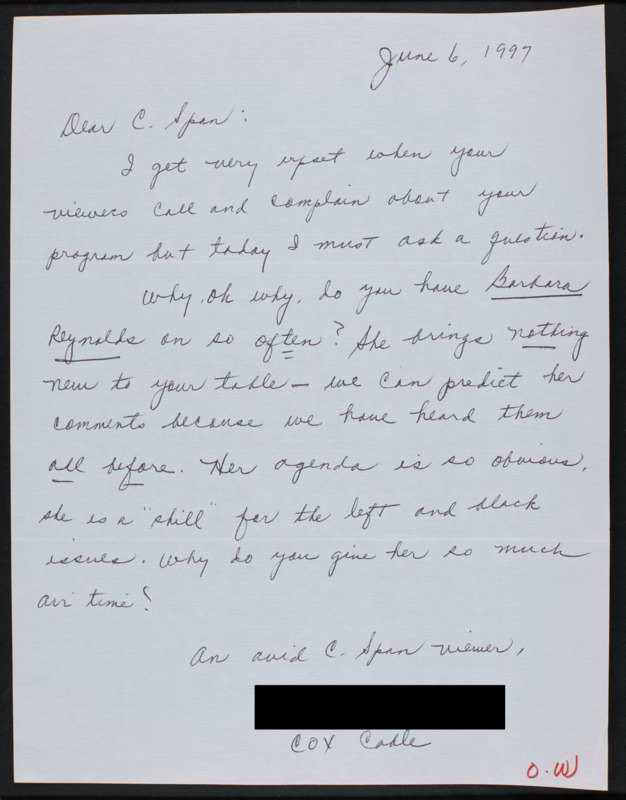 June 6, 1997
Dear C. Span:
I get very upset when your
viewers call and complain about your
program but today I must ask a question.
Why, oh why, do you have Barbara
Reynolds on so often? She brings nothing
new to your table — we can predict her
comments because we have heard them
all before. Her agenda is so obvious,
she is a "shill" for the left and black
issues. Why do you give her so much
air time?
An avid C. Span viewer,
COX Cable
O.W